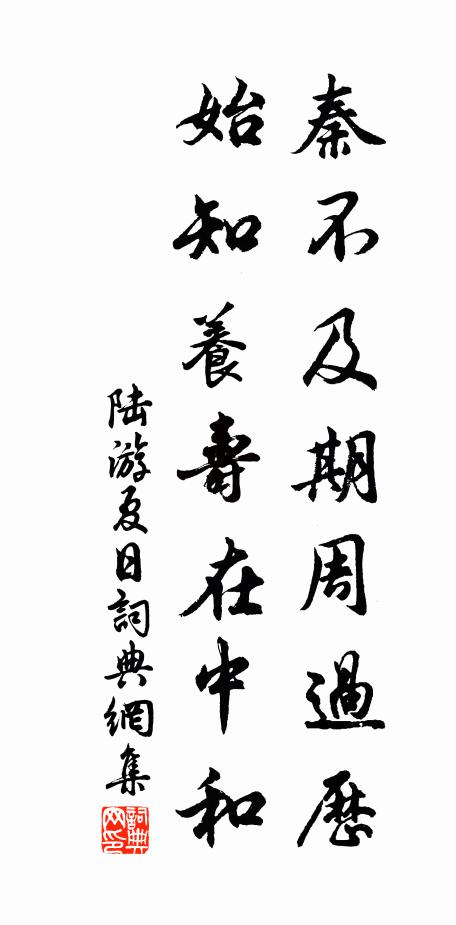 秦不及期周過歷
始知養壽在中和
陸游夏日詞典網集
詞典网印